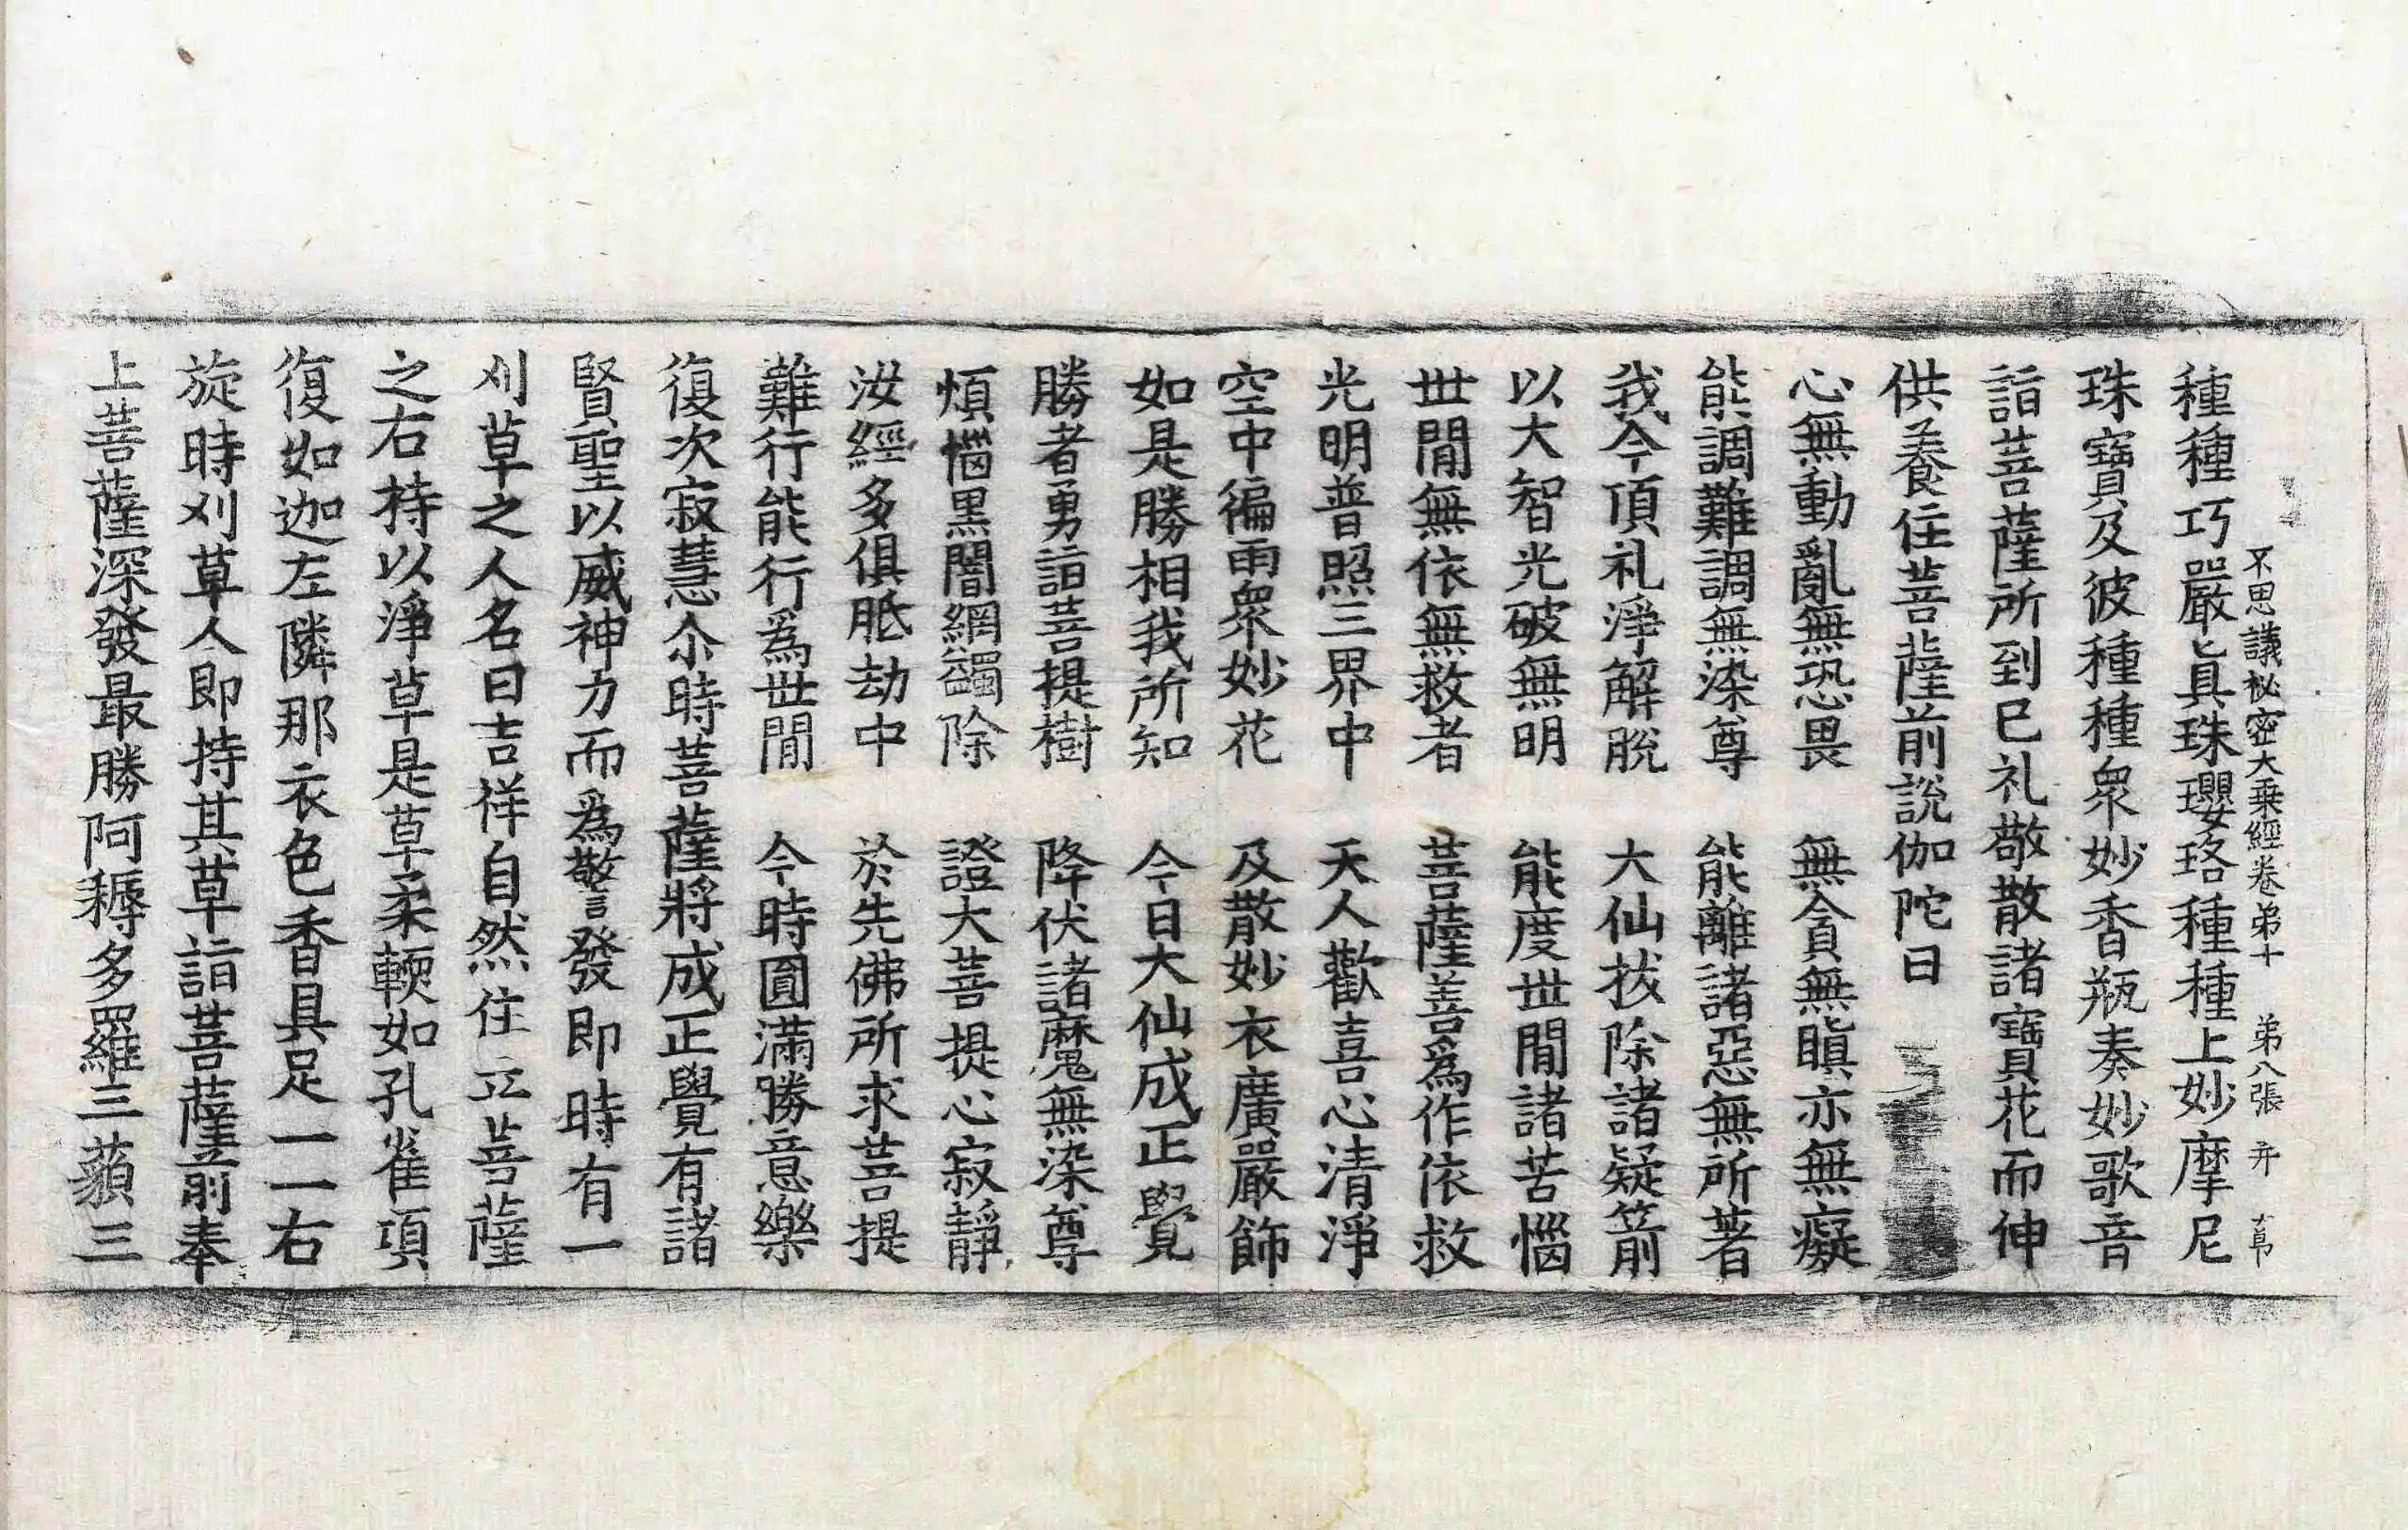 不思議祕密大乗經卷第十　第八張　弁
種種巧嚴眞珠瓔珞種種上妙摩尼
珠寶及彼種種衆妙香瓶奏妙歌音
詣菩薩所到已礼敬散諸寶花而伸
供養住菩薩前說伽陀曰
心無動亂無恐畏　無貪無瞋亦無癡
能調難調無染尊　能離諸惡無所著
我今頂礼淨解脫　大仙拔除諸疑箭
以大智光破無明　能度世閒諸苦惱
世閒無依無救者　菩薩善爲作依救
光明普照三界中　天人歡喜心清淨
空中徧雨衆妙花　及散妙衣廣嚴飾
如是勝相我所知　今日大仙成正覺
勝者勇詣菩提樹　降伏諸魔無染尊
煩惱黑闇網蠲除　證大菩提心寂靜
汝經多俱胝劫中　於先佛所求菩提
難行能行爲世閒　今時圓滿勝意樂
復次寂慧尒時菩薩將成正覺有諸
賢聖以威神力而爲警發即時有一
刈草之人名曰吉祥自然住立菩薩
之右持以淨草是草柔輭如孔雀項
復如迦左隣那衣色香具足一一右
旋時刈草人即持其草詣菩薩前奉
上菩薩深發最勝阿耨多羅三藐三